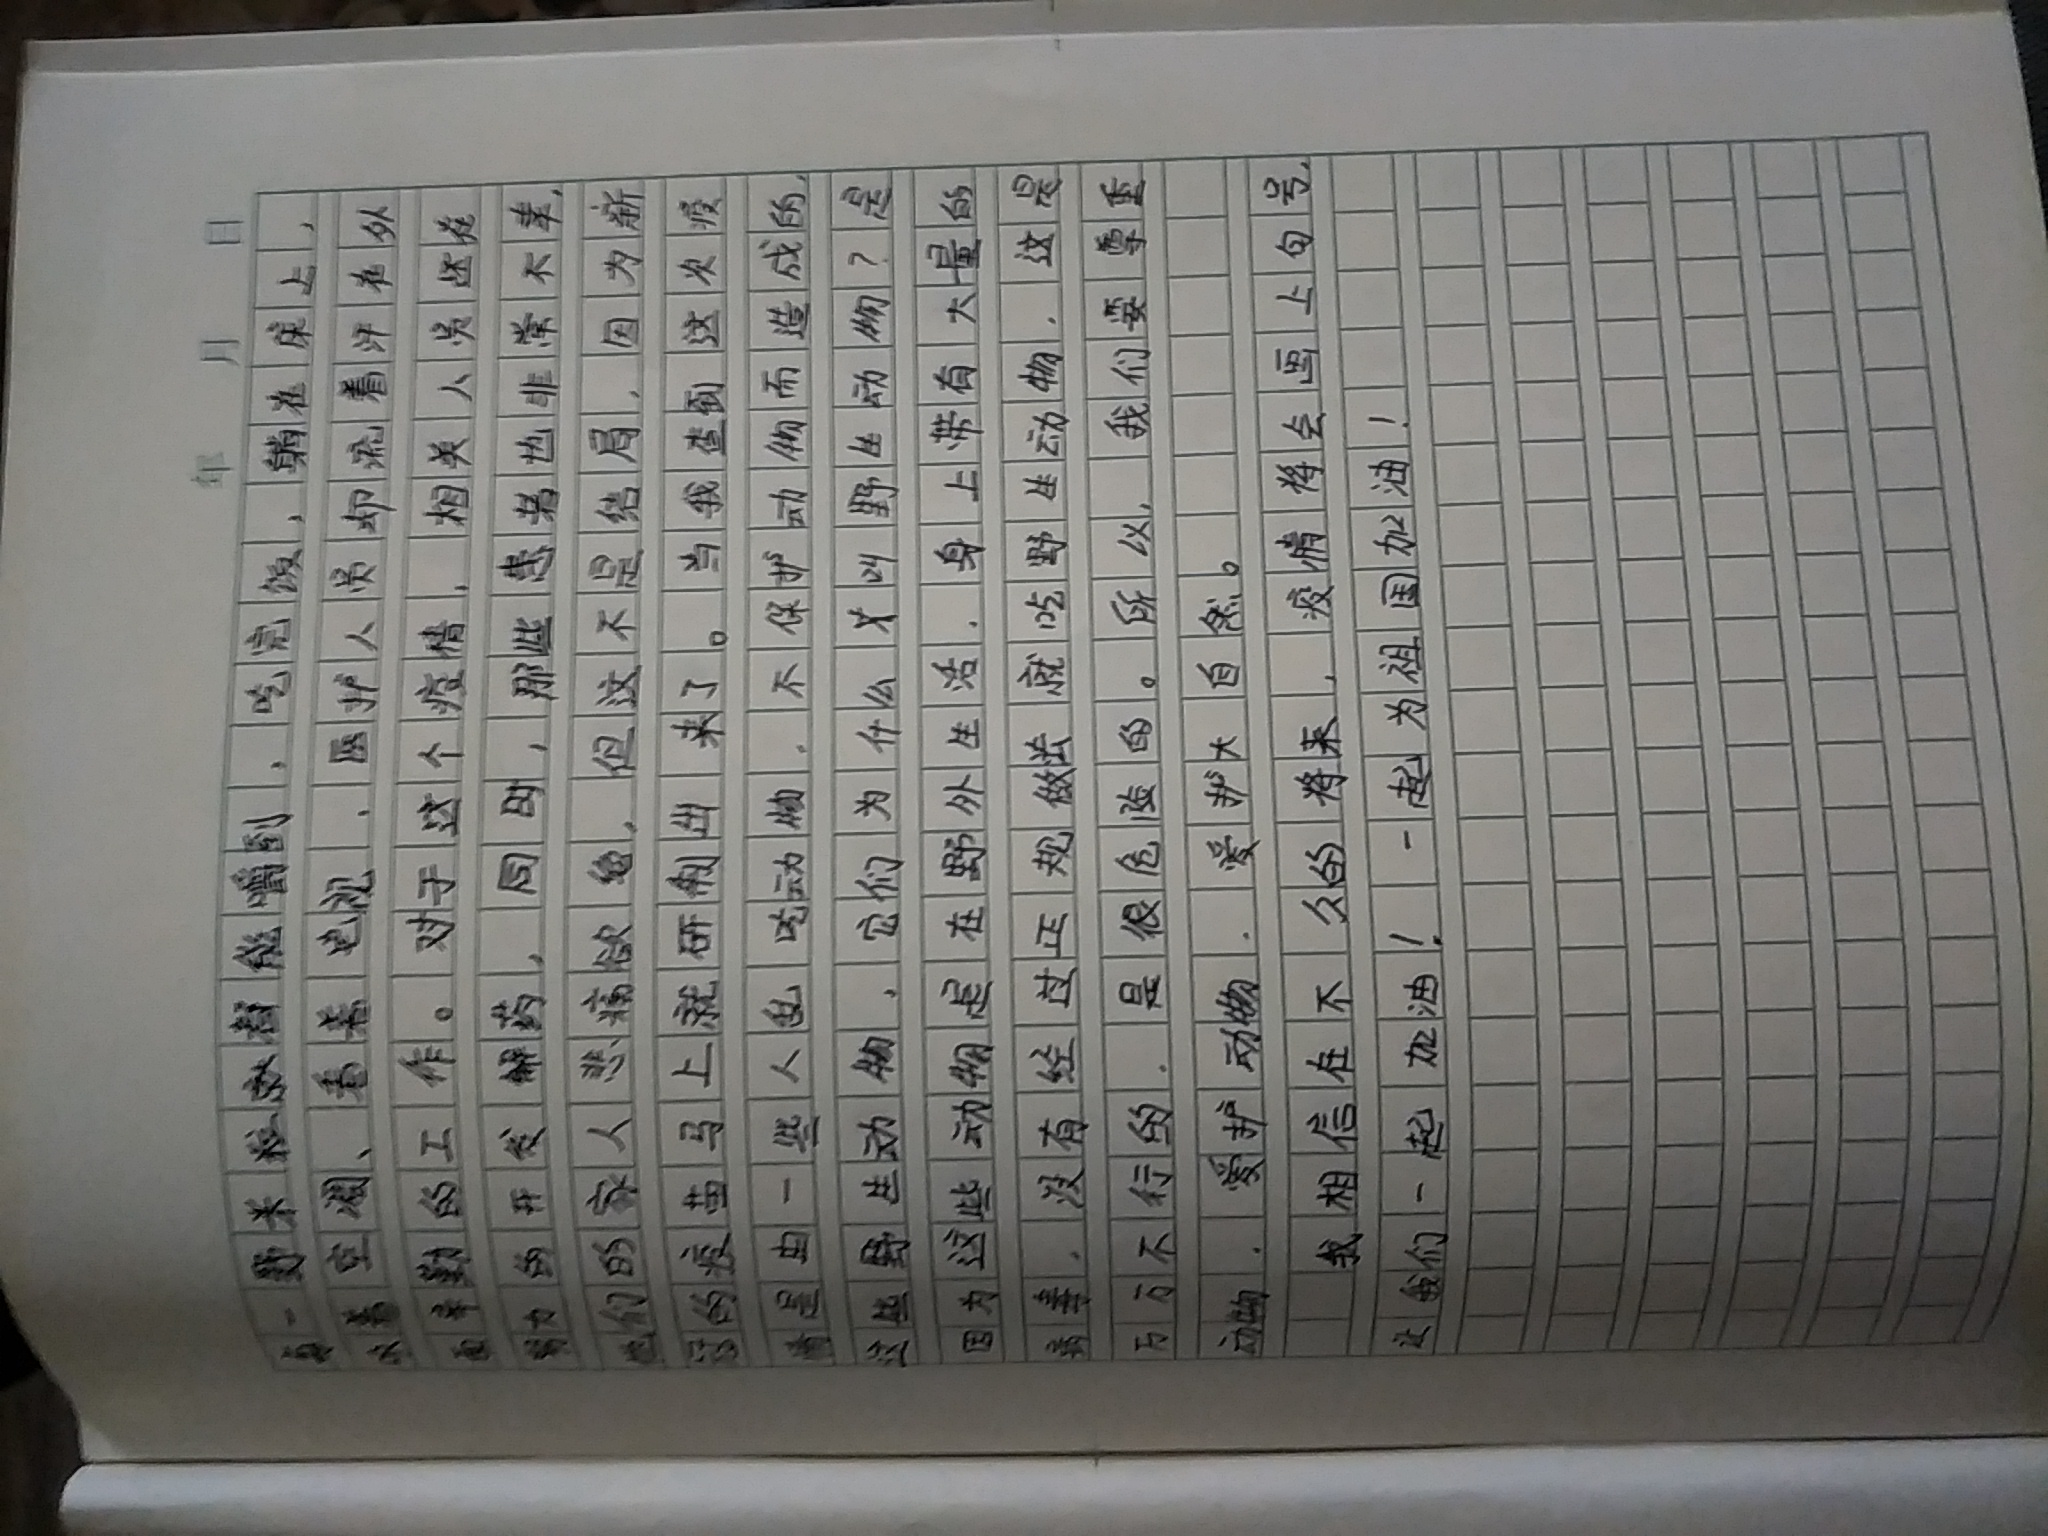 年 月 日
一颗米粒都能嚼到,吃完饭,躺在床上,
吹着空调、看着电视,医护人员却流着汗在外
面辛勤的工作。对于这个疫情,相关人员还在
努力的开发解药,同时,那些患者也非常不幸,
他们的家人悲痛欲绝,但这不是结局,因为新
冠的疫苗马上就研制出来了。当我查到这次疫
情是由一些人乱吃动物,不保护动物而造成的,
这些野生动物,它们为什么才叫野生动物?是
因为这些动物是在野外生活,身上带有大量的
病毒,没有经过正规做法就吃野生动物,这是
万万不行的,是很危险的。所以,我们要尊重
动物,爱护动物,爱护大自然。
我相信在不久的将来,疫情将会画上句号,
让我们一起加油!一起为祖国加油!